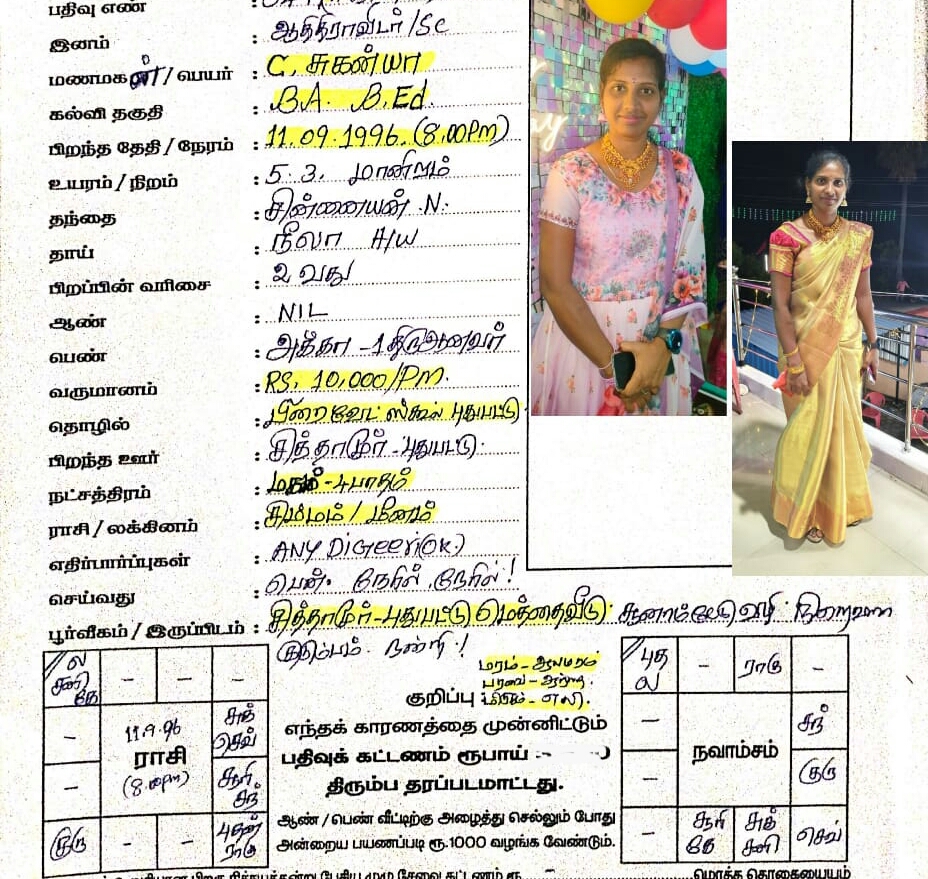 பதிவு எண் :
இனம் : ஆதிதிராவிடர் / SC
மணமகன் / பெயர் : C. சுகன்யா
கல்வி தகுதி : B.A. B.Ed.
பிறந்த தேதி / நேரம் : 11.09.1996. (8.00Pm)
உயரம் / நிறம் : 5.3. மாநிறம்
தந்தை : சின்னையன் .N.
தாய் : நீலா H/W
பிறப்பின் வரிசை : 2 வது
ஆண் : NIL
பெண் : அக்கா - 1 திருமணவர்
வருமானம் : RS. 10,000/Pm.
தொழில் : பிரைவேட் ஸ்கூல் புதுபட்டு
பிறந்த ஊர் : சித்தாமூர் - புதுபட்டு.
நட்சத்திரம் : மகம் - 4 பாதம்
ராசி / லக்கினம் : சிம்மம் / மீனம்
எதிர்பார்ப்புகள் : ANY DiGreer(OK.)
செய்வது : பெண். நேரில் நேரில் !
பூர்வீகம் / இருப்பிடம் : சித்தாமூர் - புதுபட்டு மெத்தைவீடு.
குடும்பம். நன்றி !
மரம் - ஆலமரம்
குறிப்பு : மிருகம் - எலி.
எந்தக் காரணத்தை முன்னிட்டும்
பதிவுக் கட்டணம் ரூபாய் :-
திரும்ப தரப்படமாட்டது.
ஆண் / பெண் வீட்டிற்கு அழைத்து செல்லும் போது
அன்றைய பயணப்படி ரூ.1000 வழங்க வேண்டும்.
ல சனி கே - - -
- 11.9.96 ராசி (8.00pm) சுக் செவ்
- சூரி சந்
குரு - - புதன் ராகு
புத ல - ராகு -
- நவாம்சம் சந்
- குரு
- சூரி கே சுக் சனி செவ்